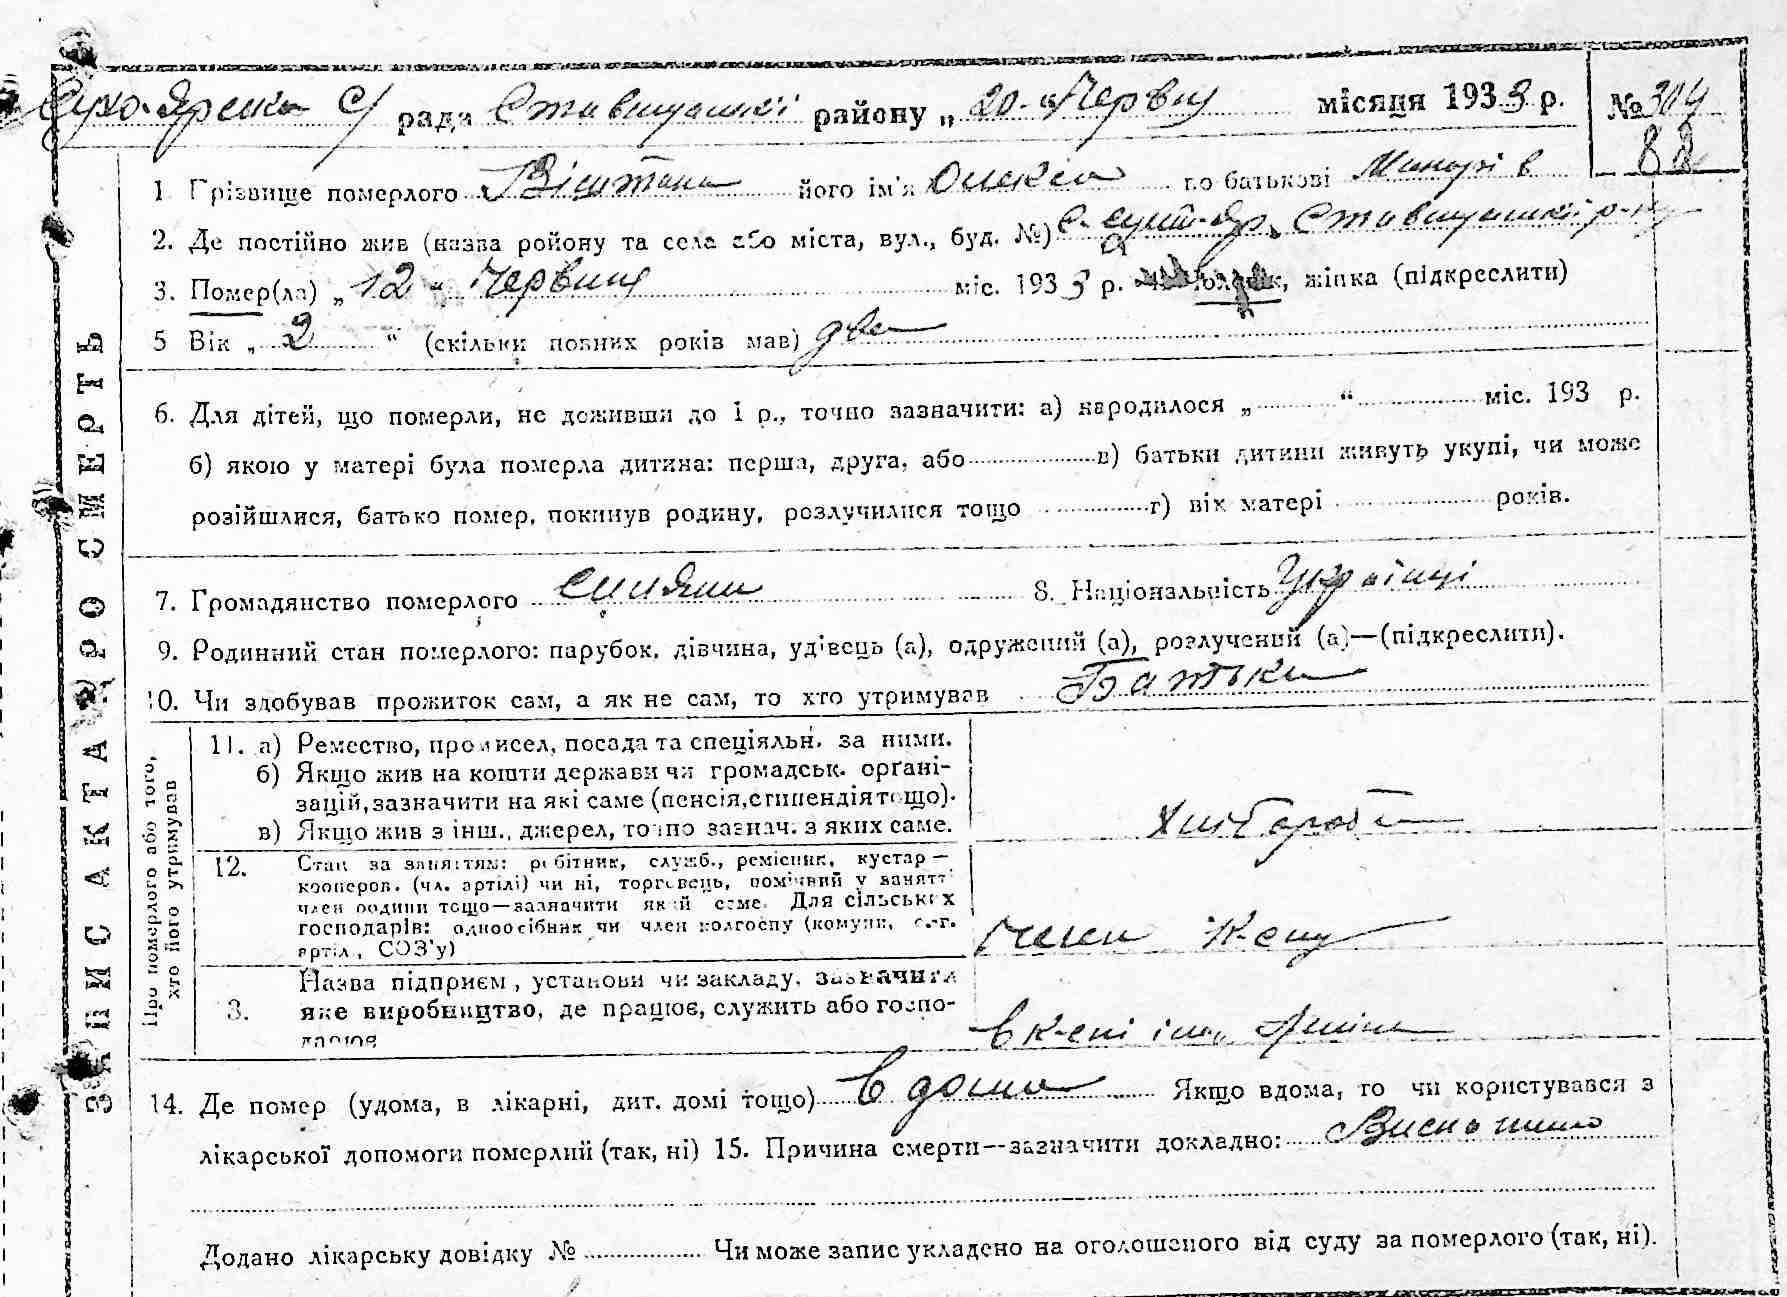 Сухо-Ярська С/ рада Ставищанскі району „20 “ Червня місяця 1933 р. № 304
88
1. Прізвище померлого його ім'я Олекса по батькові
2. Де постійно жив (назва ройону та села або міста, вул., буд. №) Ставищанскі р-ну
3. Помер(ла) „12 “ Червня міс. 1933 р. жінка (підкреслити)
5 Вік „ 2 “ (скільки повних років мав) два
6. Для дітей, що померли, не доживши до 1 р., точно зазначити: а) народилося „ “ міс. 193 р.
б) якою у матері була померла дитина: перша, друга, або в) батьки дитини живуть укупі, чи може
розійшлися, батько помер, покинув родину, розлучилися тощо г) вік матері років.
7. Громадянство померлого 8. Національність Українці
9. Родинний стан померлого: парубок, дівчина, удівець (а), одружений (а), розлучений (а)—(підкреслити).
10. Чи здобував прожиток сам, а як не сам, то хто утримував Батьки
ЗАПИС АКТА ПРО СМЕРТЬ
Про померлого або того, хто його утримував
11. а) Ремество, промисел, посада та спеціяльн. за ними.
б) Якщо жив на кошти держави чи громадськ. органі-
зацій, зазначити на які саме (пенсія, стипендія тощо).
в) Якщо жив з інш., джерел, точно зазнач. з яких саме.
Хлібороб
12. Стан за заняттям: робітник, служб., ремісник, кустар —
кооперов. (чл. артілі) чи ні, торговець, помічний у занятті
член родини тощо—зазначити який саме. Для сільських
господарів: одноосібник чи член колгоспу (комуни, с.-г.
артіл., СОЗ'у)
Член К-спу
3. Назва підприєм., установи чи закладу, зазначити
яке виробництво, де працює, служить або госпо-
дарює
в к-спі ім. Леніна
14. Де помер (удома, в лікарні, дит. домі тощо) в дома Якщо вдома, то чи користувався з
лікарської допомоги померлий (так, ні) 15. Причина смерти—зазначити докладно:
Додано лікарську довідку № Чи може запис укладено на оголошеного від суду за померлого (так, ні).